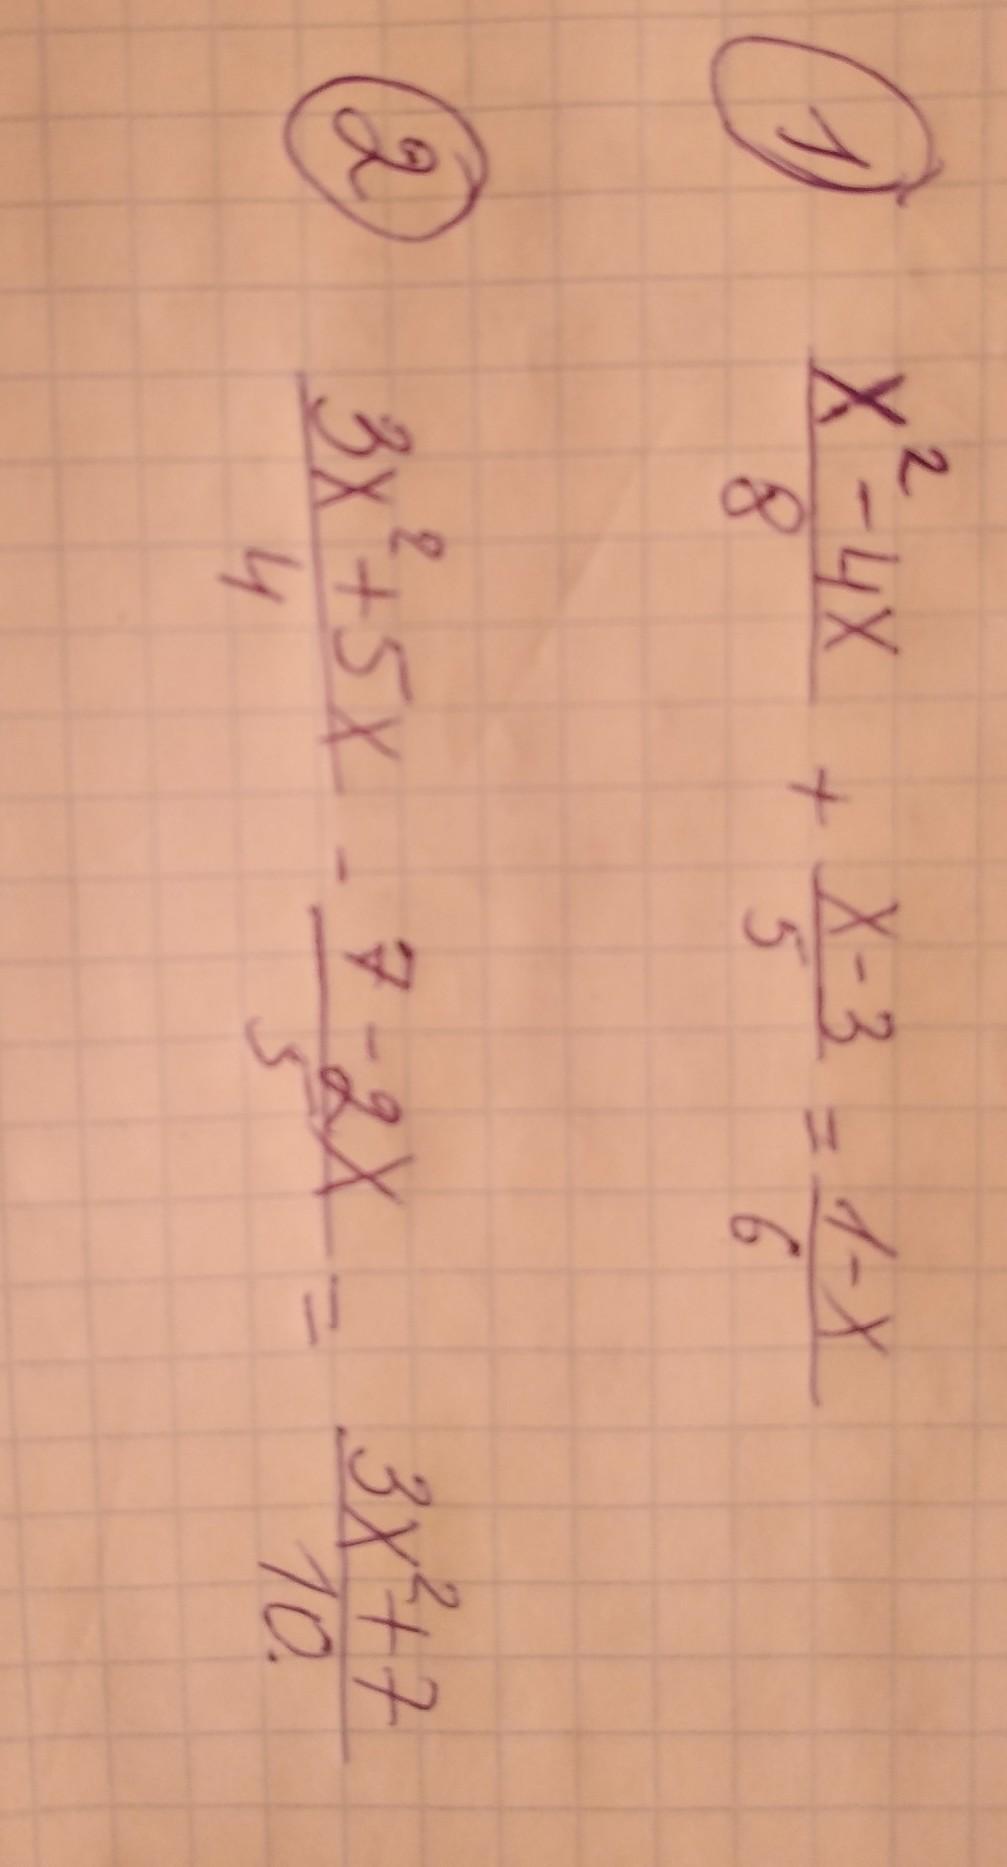 ① (x² - 4x)/8 + (x - 3)/5 = (1 - x)/6
② (3x² + 5x)/4 - (7 - 2x)/5 = (3x² + 7)/10.